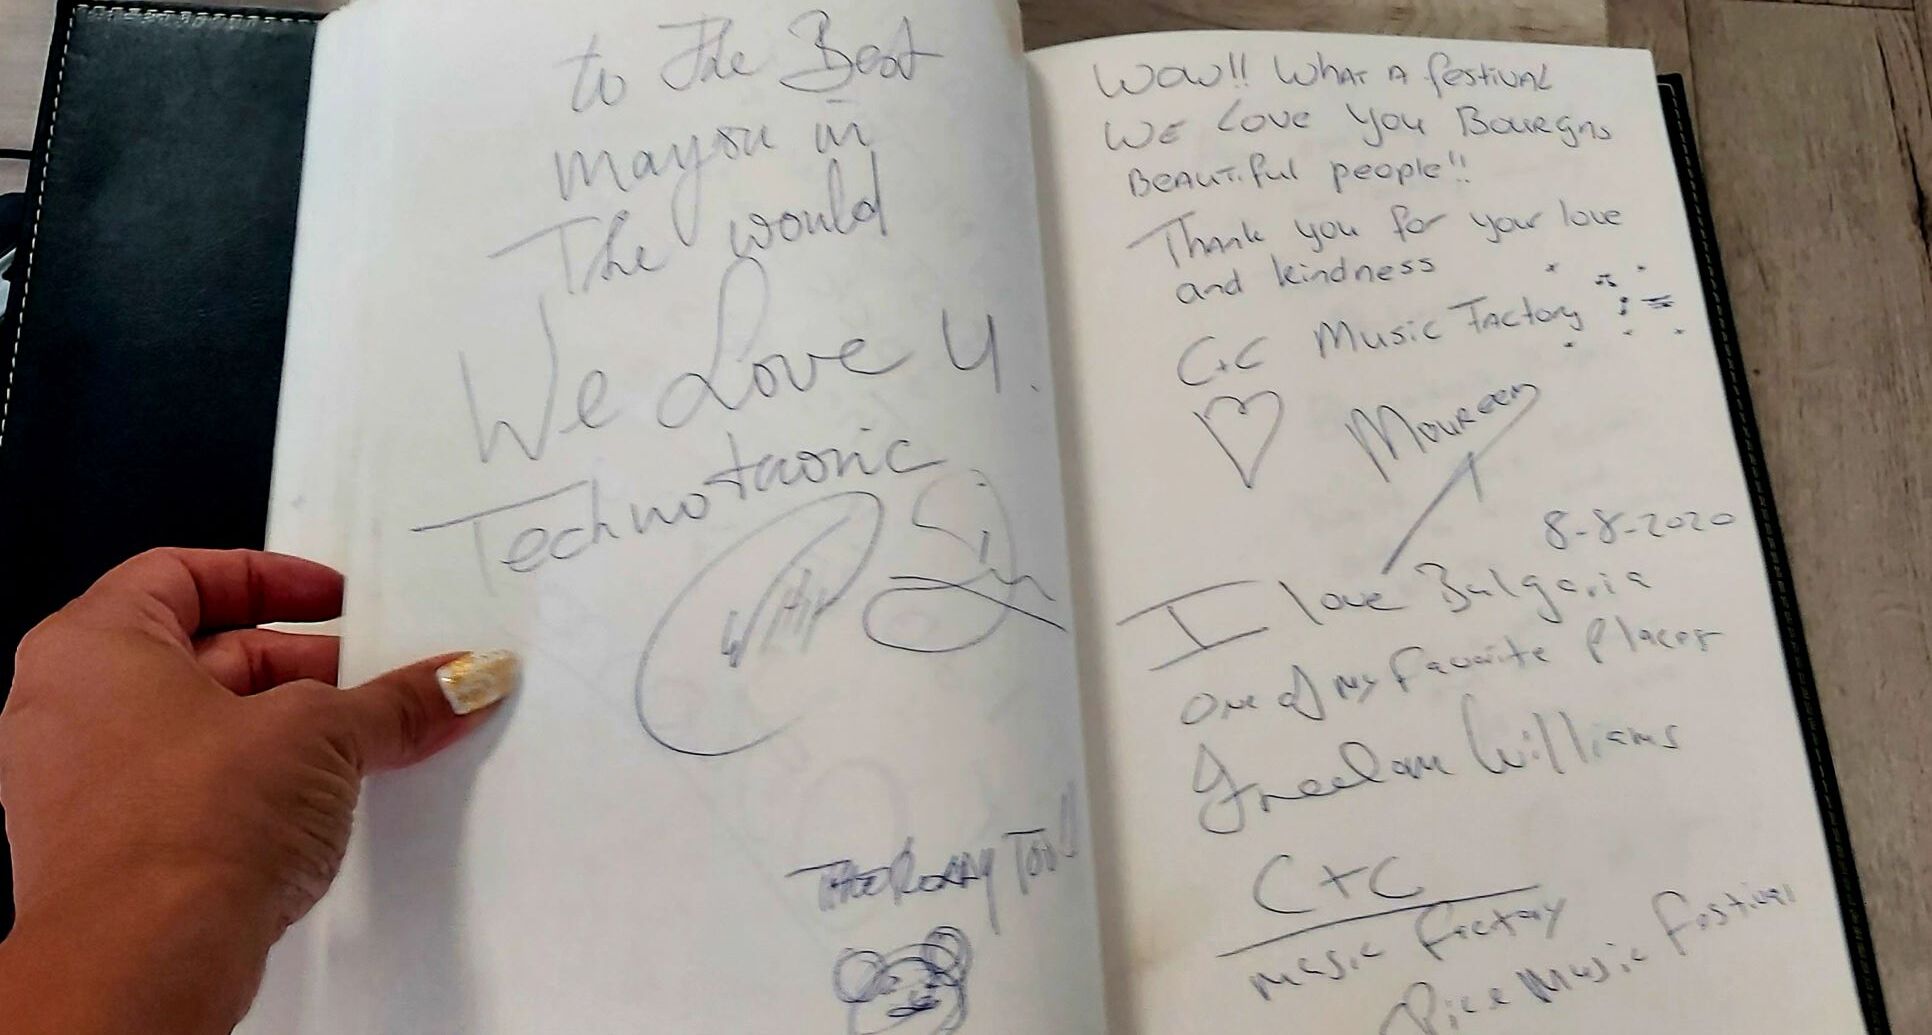 to The Best
mayou in
The would
We Love U.
Technotronic
The Reddy Ted
WOW!! WHAT A festival
WE Love you Bouregns
Beautiful people!!
Thank you for your love
and kindness
C+C Music Factory
Maureen
8-8-2020
I love Bulgaria
one of my Favorite Places
Freedom Williams
C+C
music factory
Music Festival